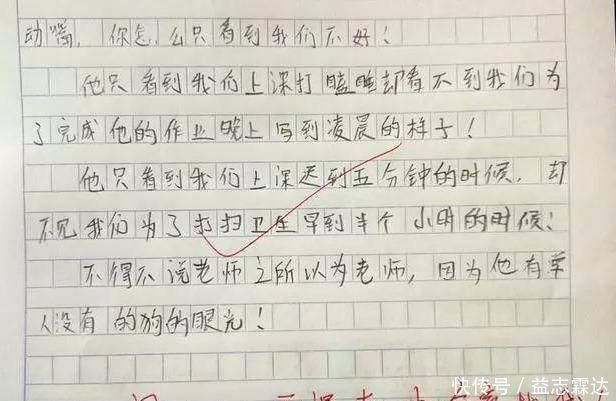 动嘴，你怎么只看到我们不好！
他只看到我们上课打瞌睡却看不到我们为
了完成他的作业晚上写到凌晨的样子！
他只看到我们上课迟到五分钟的时候，却
不见我们为了打扫卫生早到半个小时的时候！
不得不说老师之所以为老师，因为他有常
人没有的狗的眼光！
快传号／益志霖达